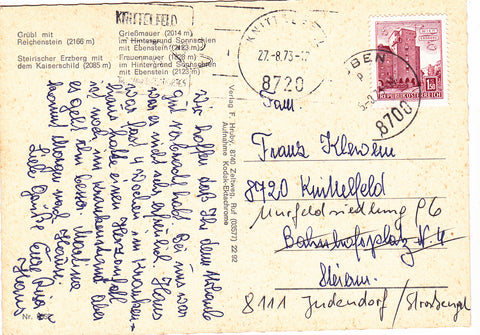 Grübl mit
Reichenstein (2166 m)
Steirischer Erzberg mit
dem Kaiserschild (2085 m)
Grießmauer (2014 m)
im Hintergrund Sonnschien
mit Ebenstein (2123 m)
Frauenmauer (1828 m)
im Hintergrund Sonnschien
mit Ebenstein (2123 m)
KNITTELFELD
KNITTELF
27.-8.73-12
8720
BEN
8700
REPUBLIK ÖSTERREICH
Verlag F. Hruby, 8740 Zeltweg, Ruf (03577) 22 92
Aufnahme Kodak-Ektachrome
Wir hoffen daß Ihr den Urlaub
gut verbracht habt. Bei uns war
es nicht sehr erfreulich Hans
war fast 4 Wochen im Kranken-
haus hatte einen Herzanfall
ist noch im Krankenstand aber
es geht ihm besser. Martina
kommt Morgen nach Hause.
Liebe Grüße Eure
Hans
Fam
Franz Klewein
8720 Knittelfeld
Murfeldsiedlung 96
Bahnhofsplatz N. 4
Steierm.
8111 Judendorf / Straßengel
Nr.